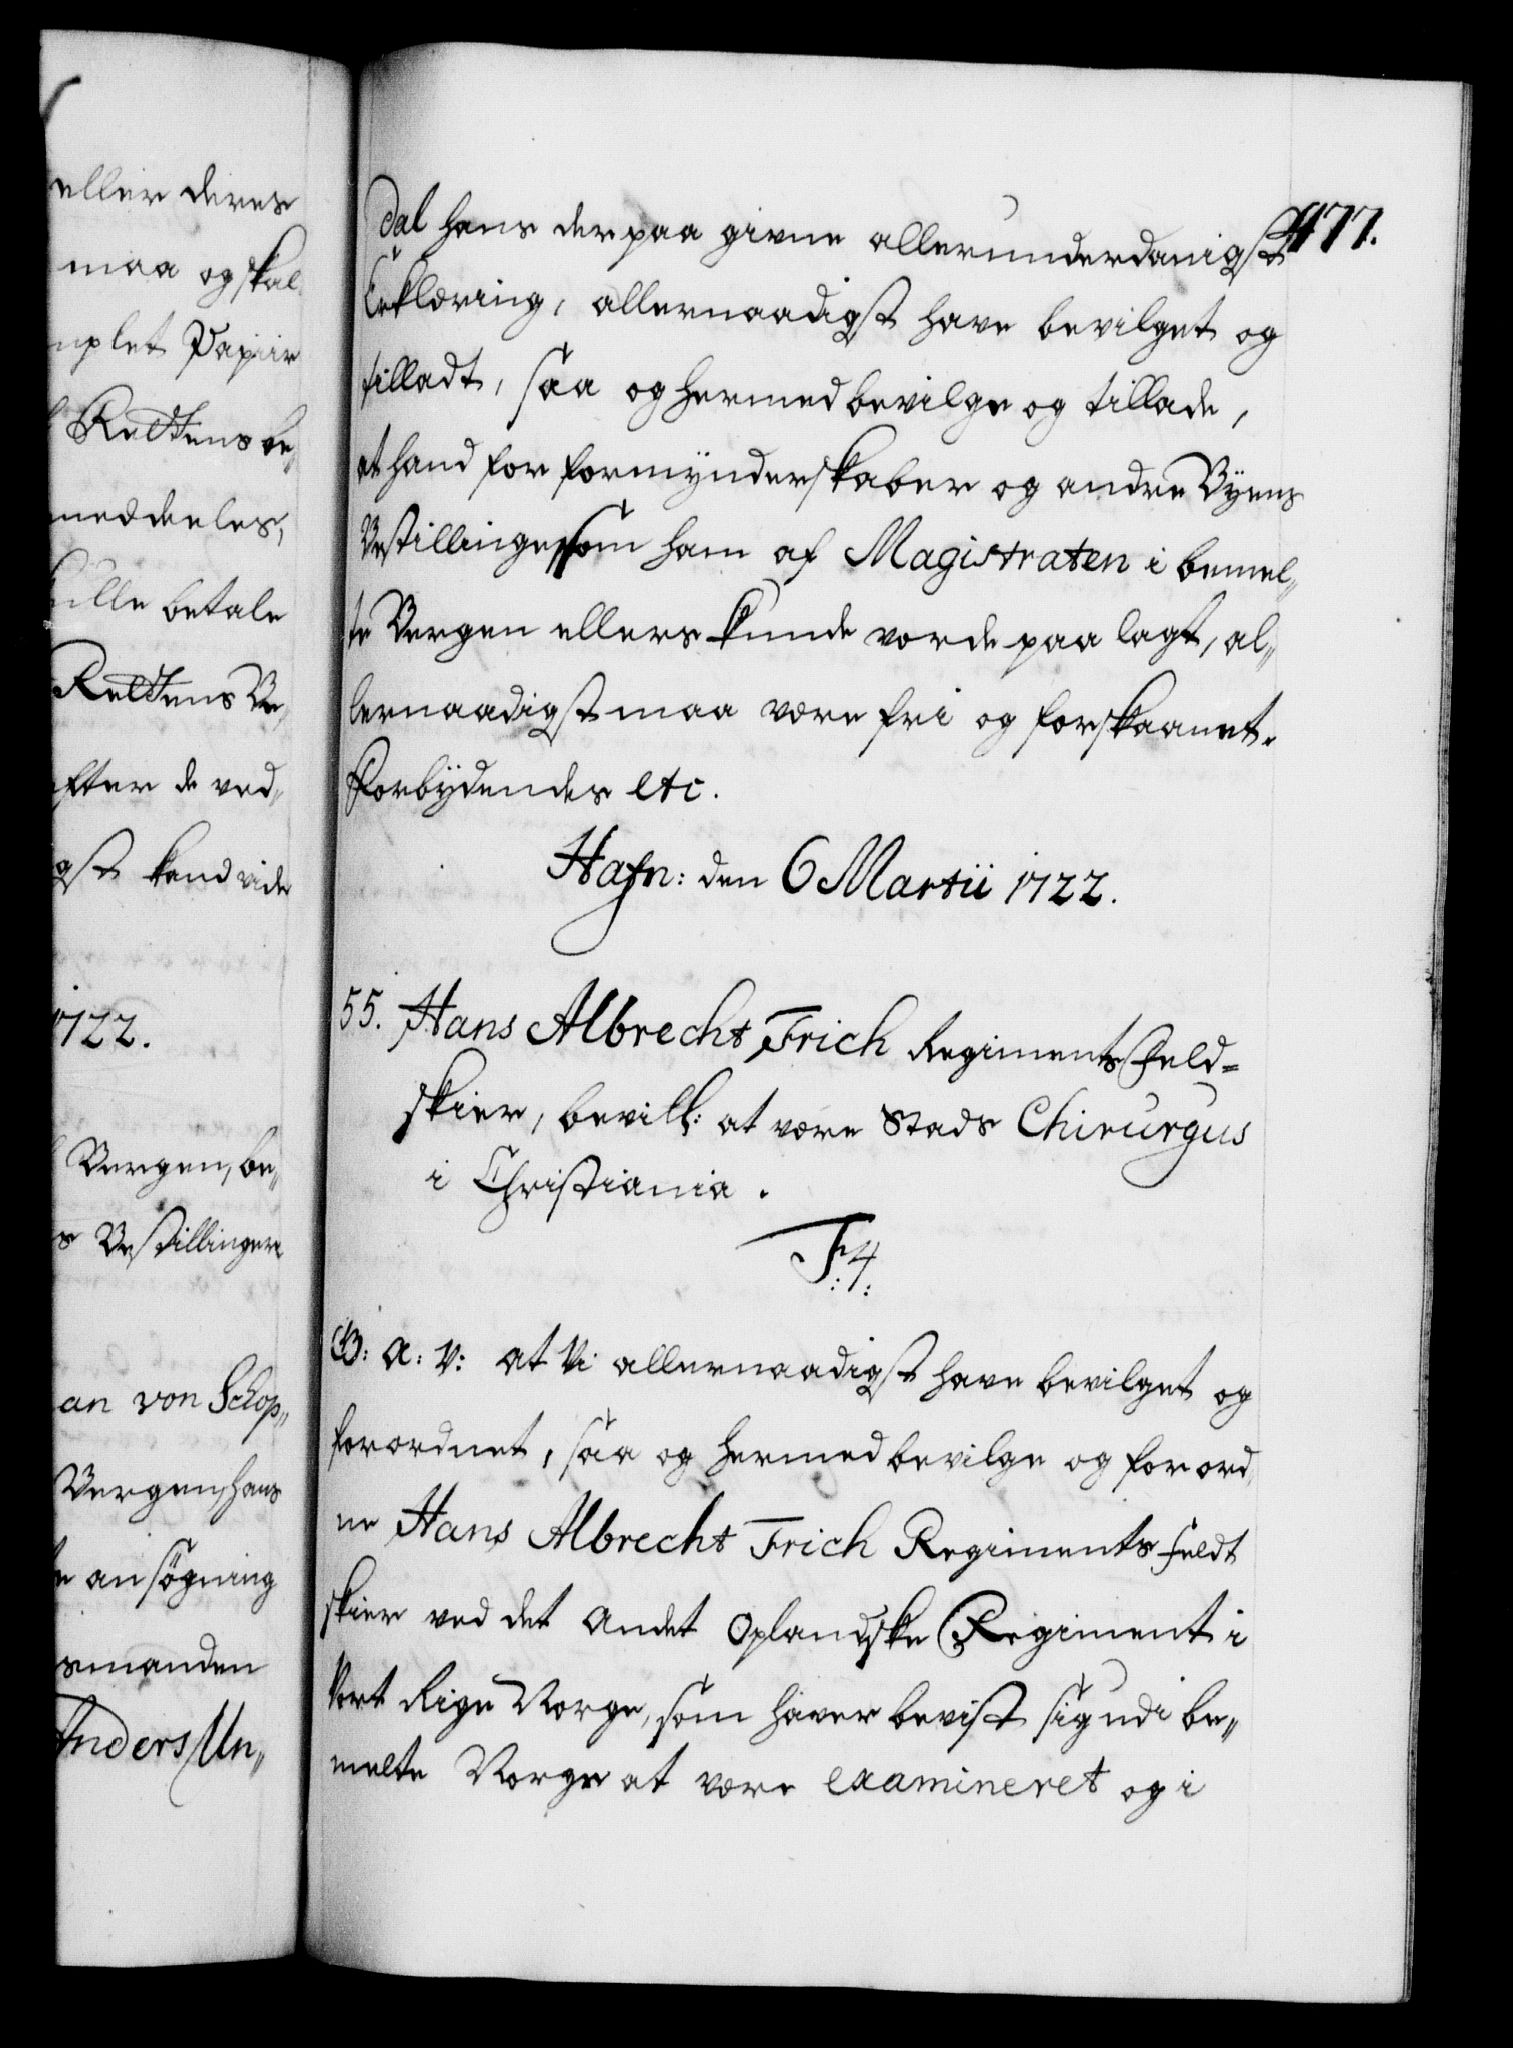 eller deres
maa og skal
mplet Papiir
Rettens be„
meddeeles,
kulle betale
Rettens Be„
efter de ved„
gst kand vide
1722.
Bergen, be„
s Bestillinger
an von Schop„
Bergen, hans
te ansögning
smanden
Anders Un„
477.
dal hans derpaa givne allerunderdanigst
Erklæring, allernaadigst have bevilget og
tilladt, saa og hermed bevilge og tillade,
at hand for formynderskaber og andre Byens
Bestillinger som ham af Magistraten i bemel„
te Bergen ellers kunde vorde paa lagt, al„
lernaadigst maa være fri og forskaanet.
Forbydendes etc.
Hafn: den 6 Martii 1722.
55. Hans Albrecht Frich Regiments Feld=
skier, bevilg: at være Stads Chirurgus
i Christiania.
F:4:
G: A: V: at Vi allernaadigst have bevilget og
forordnet, saa og hermed bevilge og forord
ne Hans Albrecht Frich Regiments Feldt
skier ved det Andet Oplandske Regiment i
Vort Rige Norge, som haver bevist sig udi be„
melte Norge at være examineret og i